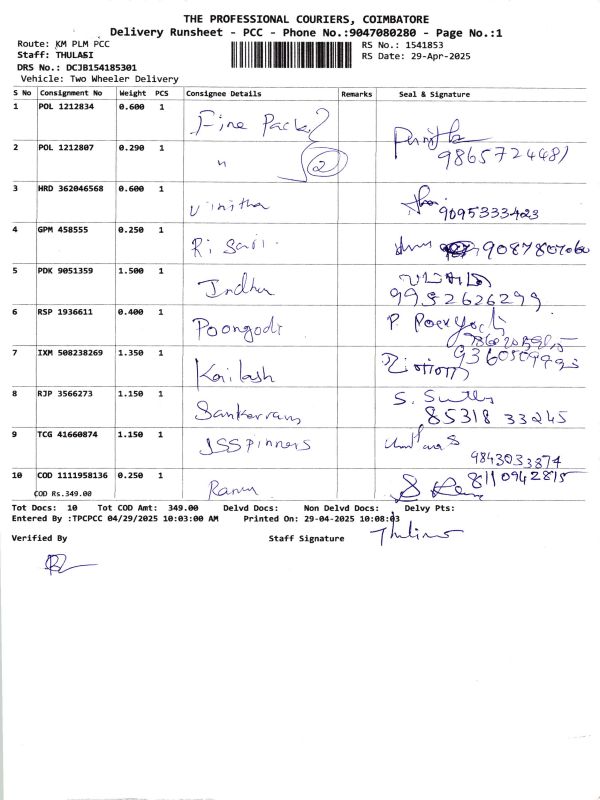 THE PROFESSIONAL COURIERS, COIMBATORE
Delivery Runsheet - PCC - Phone No.:9047080280 - Page No.:1
Route: KM PLM PCC
RS No.: 1541853
Staff: THULASI
RS Date: 29-Apr-2025
DRS No.: DCJB154185301
Vehicle: Two Wheeler Delivery
S No Consignment No Weight PCS Consignee Details Remarks Seal & Signature
1 POL 1212834 0.600 1 Fine Pack
2 POL 1212807 0.290 1 " 2 9865724481
3 HRD 362046568 0.600 1 Vinitha 9095333423
4 GPM 458555 0.250 1 Ri Sari
5 PDK 9051359 1.500 1 Indhu 9952626299
6 RSP 1936611 0.400 1 Poongodi P.
7 IXM 508238269 1.350 1 Kailash
8 RJP 3566273 1.150 1 Sankarram S. 85318 33245
9 TCG 41660874 1.150 1 JSSpinners 9843033874
10 COD 1111958136 0.250 1 Ramu 8110942815
COD Rs.349.00
Tot Docs: 10 Tot COD Amt: 349.00 Delvd Docs: Non Delvd Docs: Delvy Pts:
Entered By :TPCPCC 04/29/2025 10:03:00 AM Printed On: 29-04-2025 10:08:03
Verified By Staff Signature